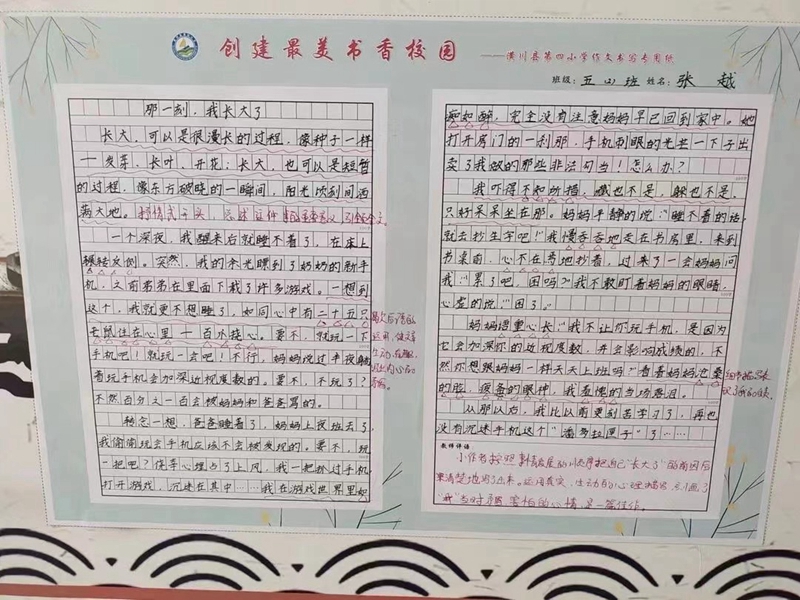 创建最美书香校园
——潢川县第四小学作文书写专用纸
班级：五（4）班 姓名：张越
那一刻，我长大了
长大，可以是很漫长的过程，像种子一样
——发芽，长叶，开花；长大，也可以是短暂
的过程，像东方破晓的一瞬间，阳光饮刻间洒
满大地。
一个深夜，我醒来后就睡不着了，在床上
辗转反侧。突然，我的余光瞟到了奶奶的新手
机，之前爸爸在里面下载了许多游戏。一想到
这个，我就更不想睡了，如同心中有二十五只
老鼠住在心里——百爪挠心。要不，就玩一下
手机吧！就玩一会吧！不行，妈妈说过半夜躺
着玩手机会加深近视度数的。要不，不玩了？
不然百分之一百会被妈妈和爸爸骂的。
转念一想，爸爸睡着了，妈妈上夜班去了，
我偷偷玩会手机应该不会被发现的。要不，玩
一把吧？侥幸心理占了上风，我一把抢过手机
打开游戏，沉迷在其中……我在游戏世界里如
痴如醉，完全没有注意妈妈早已回到家中。她
打开房门的一刹那，手机刺眼的光芒一下子出
卖了我做的那些非法勾当！怎么办？
我吓得不知所措，藏也不是，躲也不是，
只好呆呆坐在那。妈妈平静的说“睡不着的话，
就去抄生字吧！”我慢吞吞地走在书房里，来到
书桌前，心不在焉地抄着，过来了一会妈妈问
我“累了吧，困吗？”我不敢盯着妈妈的眼睛，
心虚的说“困了。”
妈妈语重心长“我不让你玩手机，是因为
它会加深你的近视度数，并会影响成绩的，不
然你想跟妈妈一样天天上班吗”看着妈妈沧桑
的脸，疲惫的眼神，我羞愧的当场难泪。
从那以后，我比以前更刻苦学习了，再也
没有沉迷手机这个“潘多拉匣子”了……
教师评语：
小作者按照事情发展的顺序把自己“长大了”的前因后
果清楚地写了出来。运用真实、生动的心理描写，刻画了
“我”当时紧张害怕的心情，是一篇佳作。